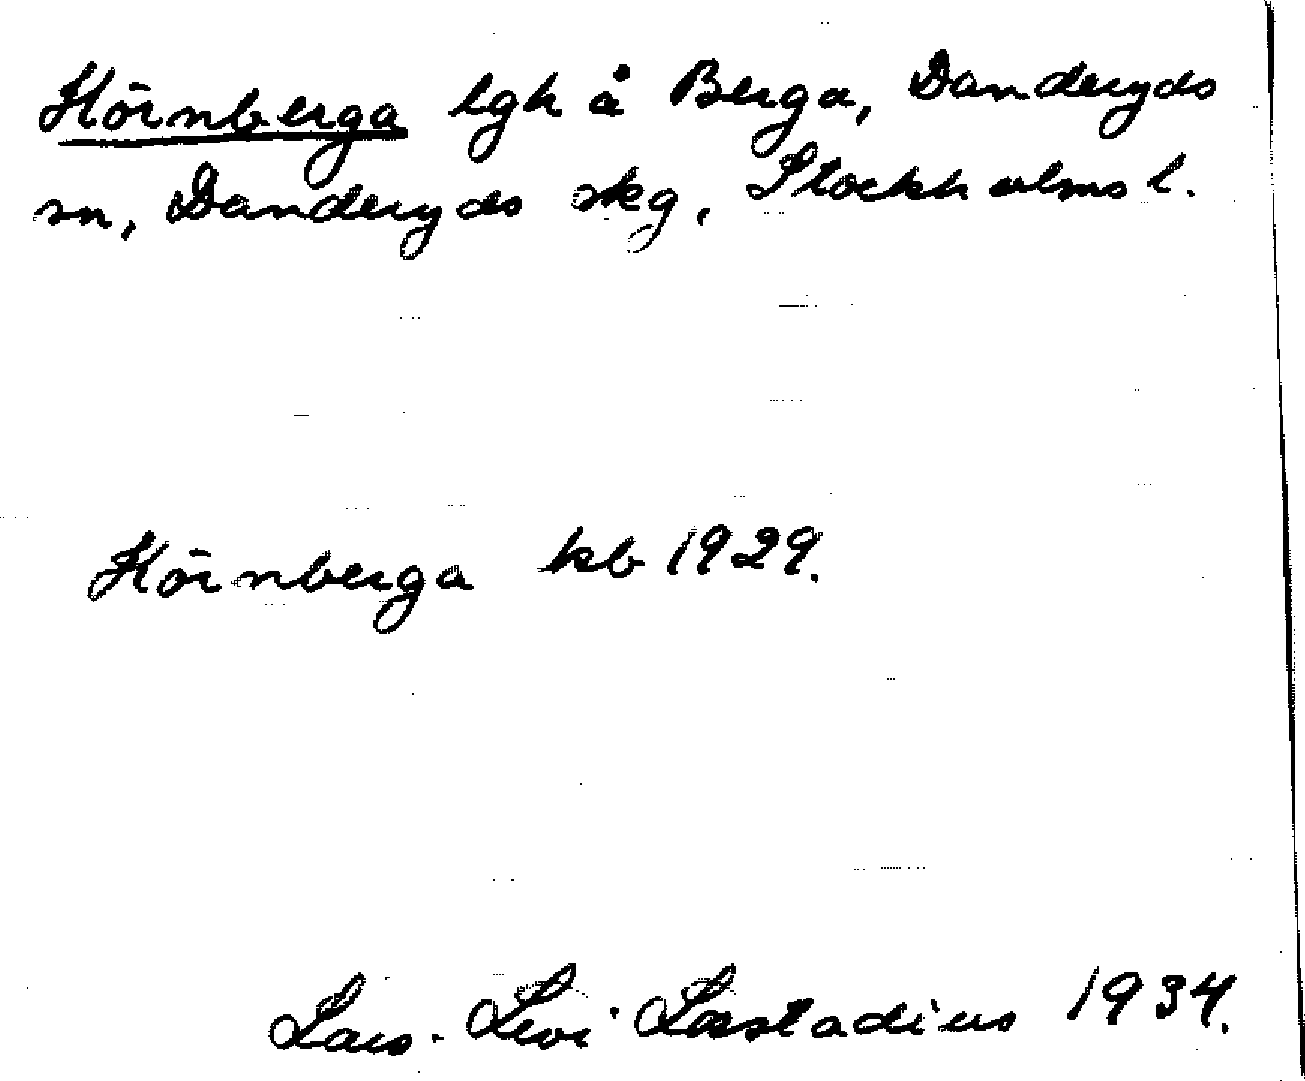 Hörnberga lgh å Berga, Danderyds
sn, Danderyds skg, Stockholms l.
Hörnberga kb 1929.
Lars-Levi Læstadius 1934.